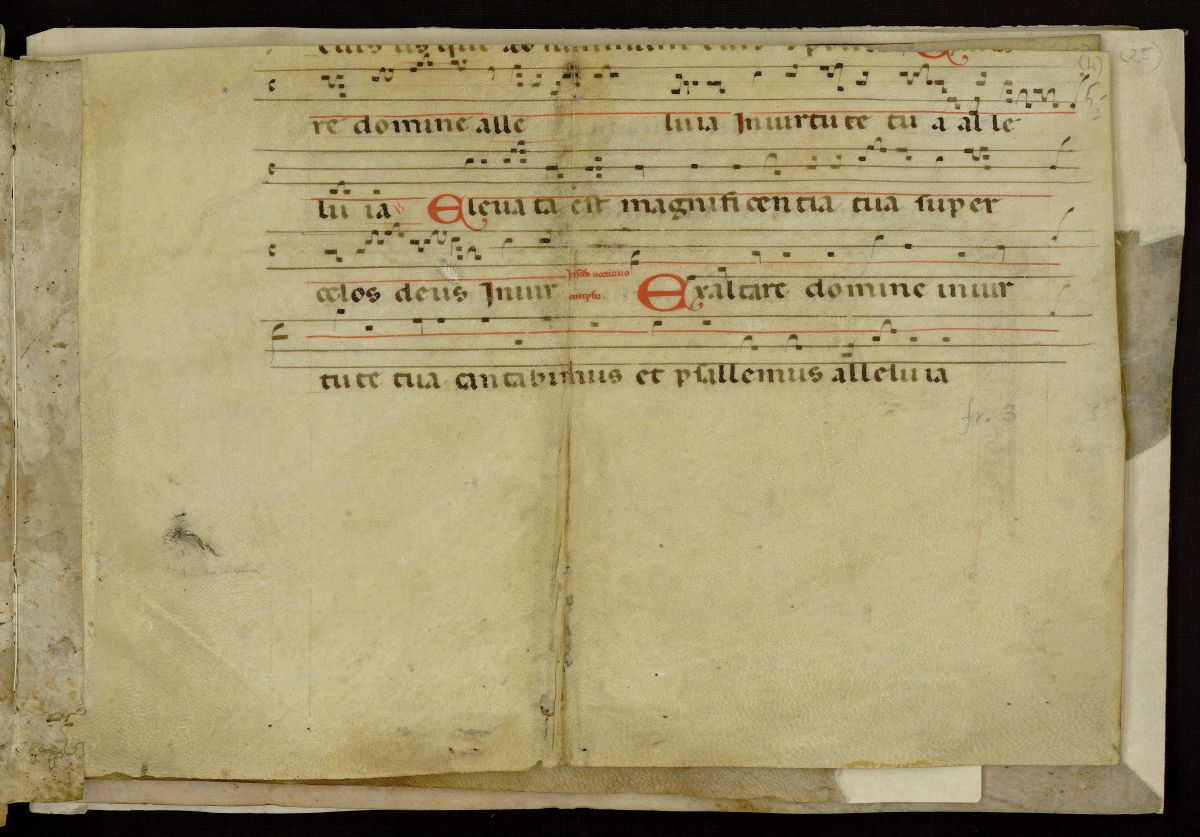 eius usque ad
(25)
re domine alle luia In uirtute tu a al le
lu ia Eleuata est magnificentia tua super
celos deus In uir
Exaltare domine in uir
tute tua cantabimus et psallemus alleluia
fr. 3